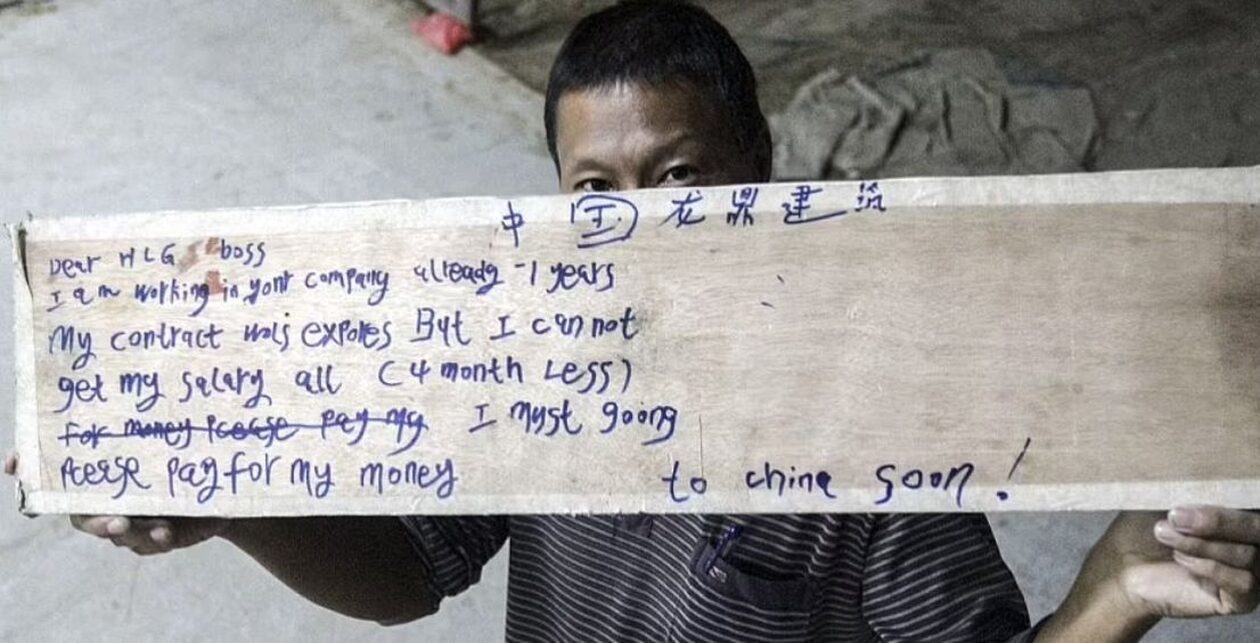 中国龙鼎建筑
Dear HLG boss
I am working in your company already -1 years
My contract was expores But I can not
get my salary all (4 month Less)
for money Please pay my I must going
Please pay for my money to china soon!